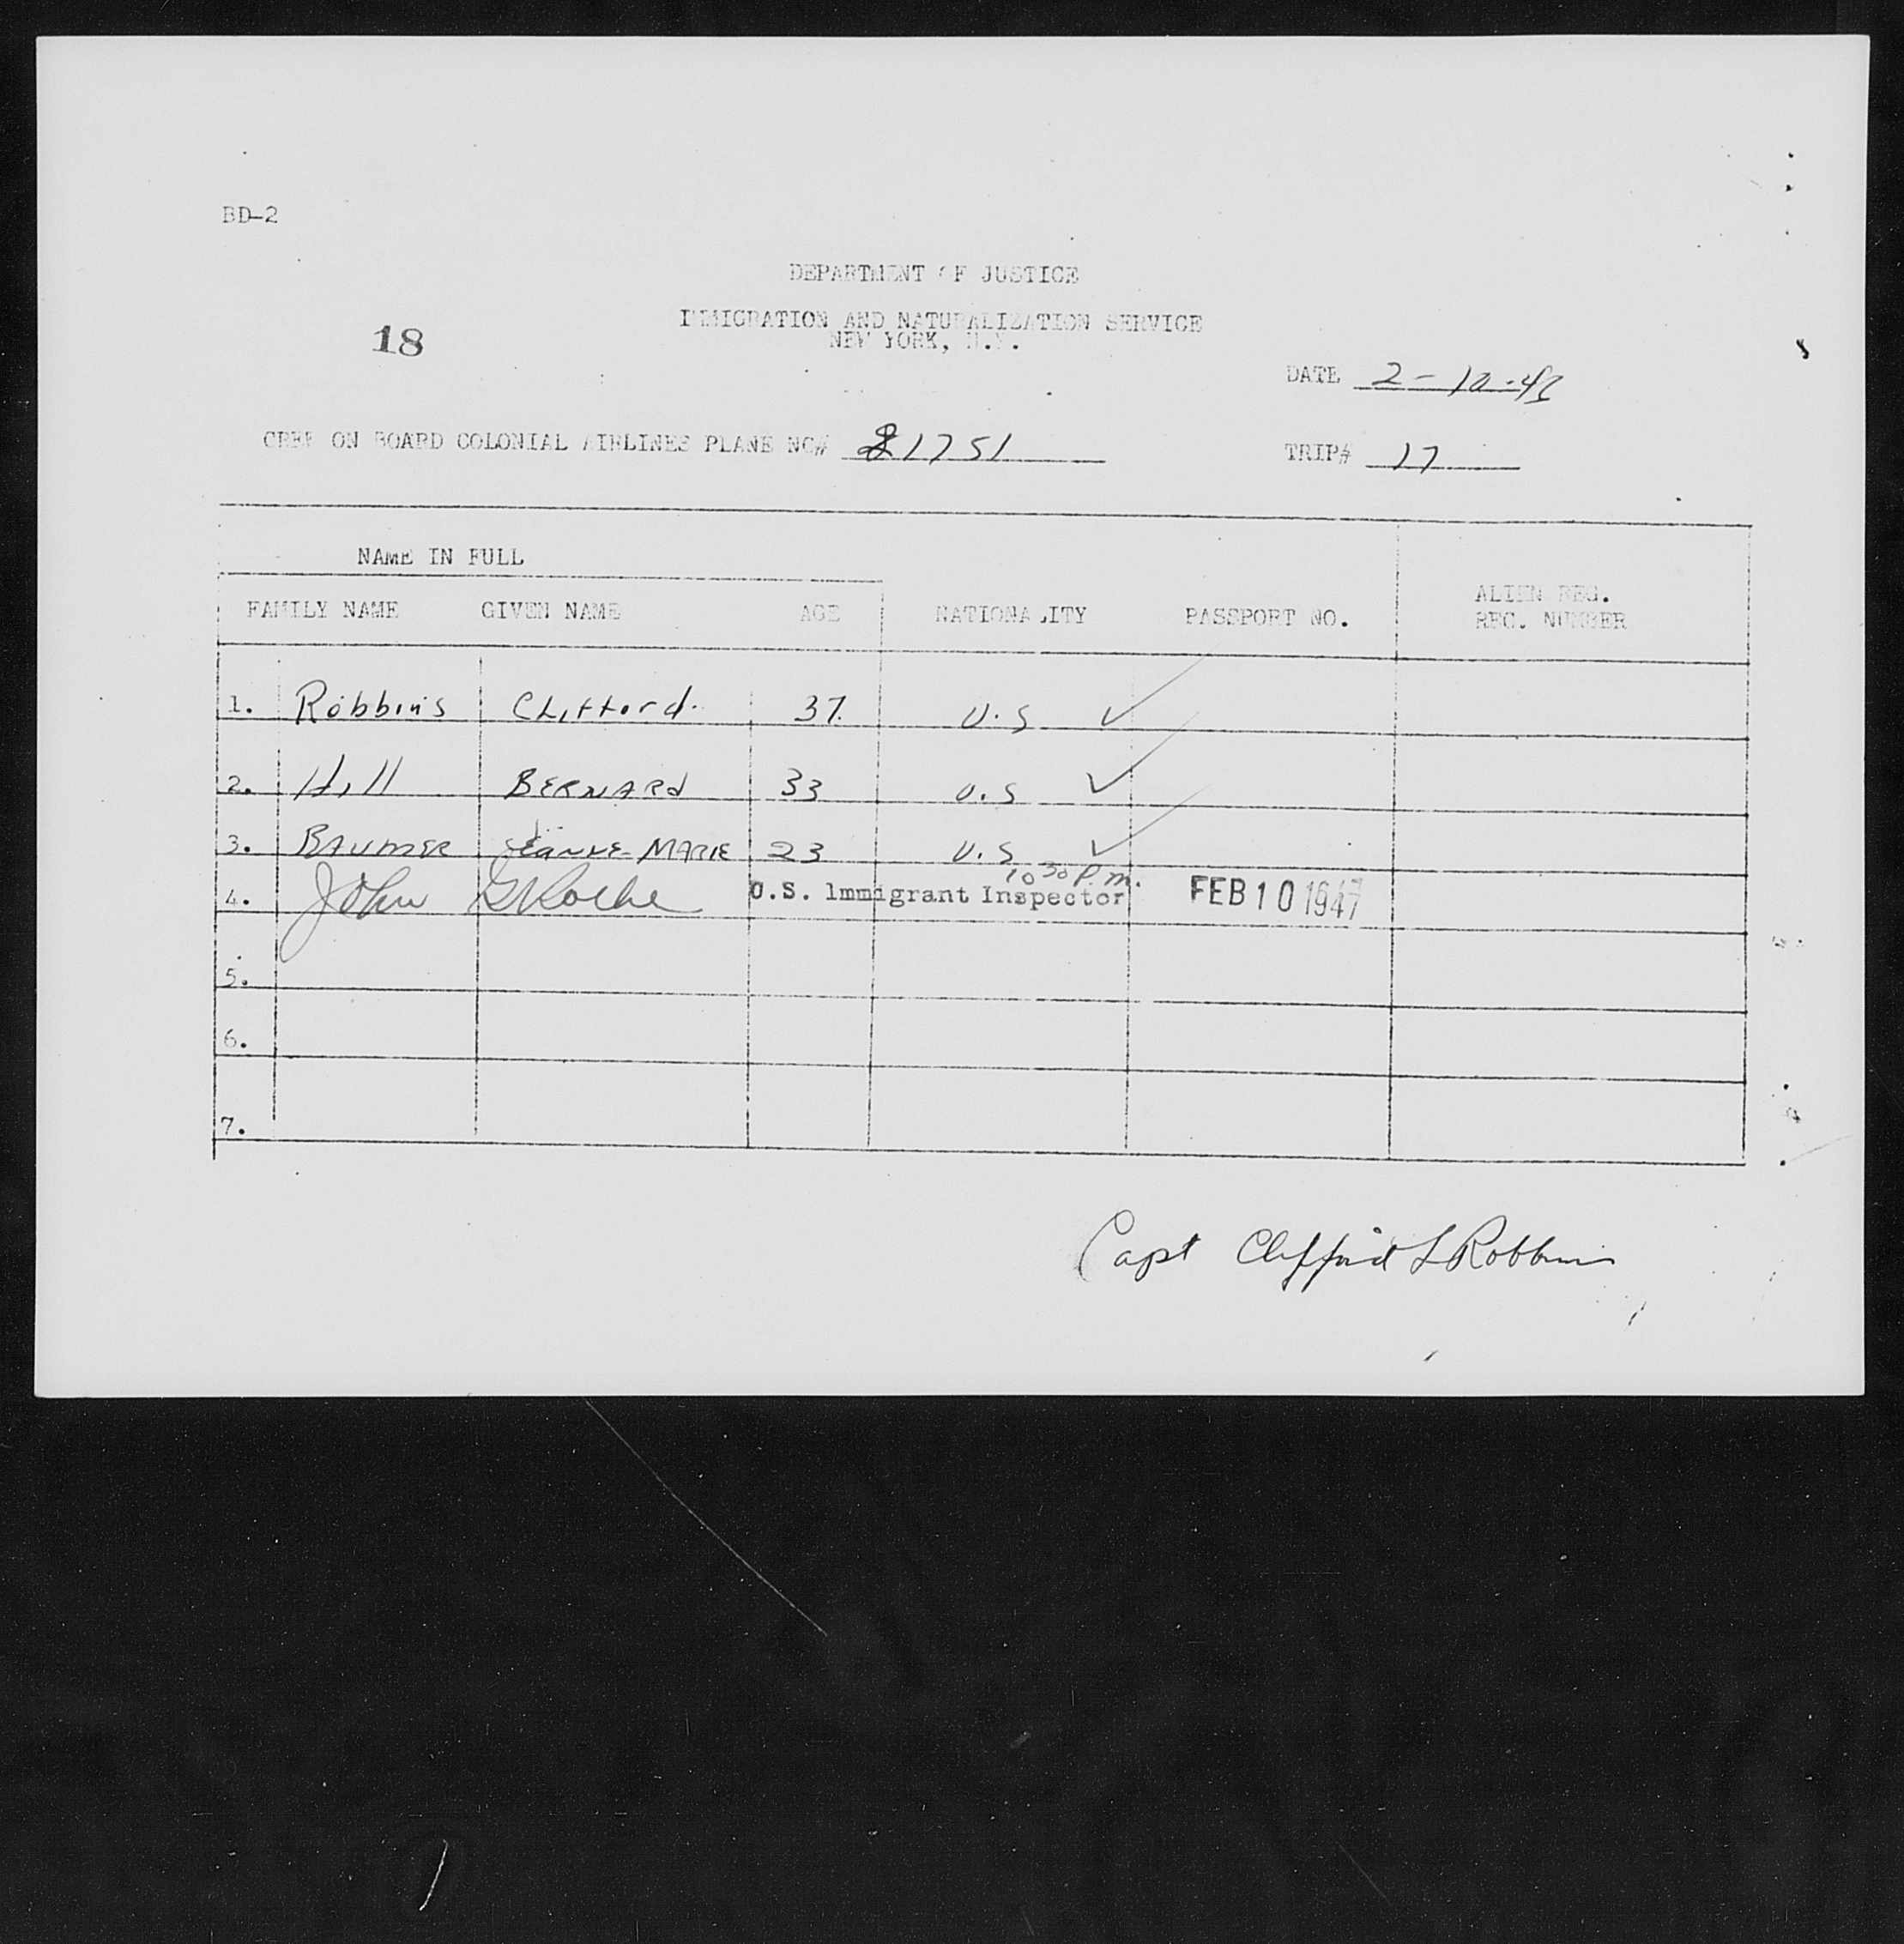 BD-2
DEPARTMENT OF JUSTICE
IMMIGRATION AND NATURALIZATION SERVICE
NEW YORK, N.Y.
18
DATE 2-10-47
CREW ON BOARD COLONIAL AIRLINES PLANE NC# 21751 TRIP# 17
NAME IN FULL
FAMILY NAME GIVEN NAME AGE NATIONALITY PASSPORT NO. ALIEN REG.
REC. NUMBER
1. Robbins Clifford. 37. U.S ✓
2. Hill BERNARd 33 U.S ✓
3. BAUMER JEANNE-MARIE 23 U.S ✓
10 30 P.m.
4. John G Roche U.S. lmmigrant Inspector FEB 10 1947
5.
6.
7.
Capt Clifford L Robbins